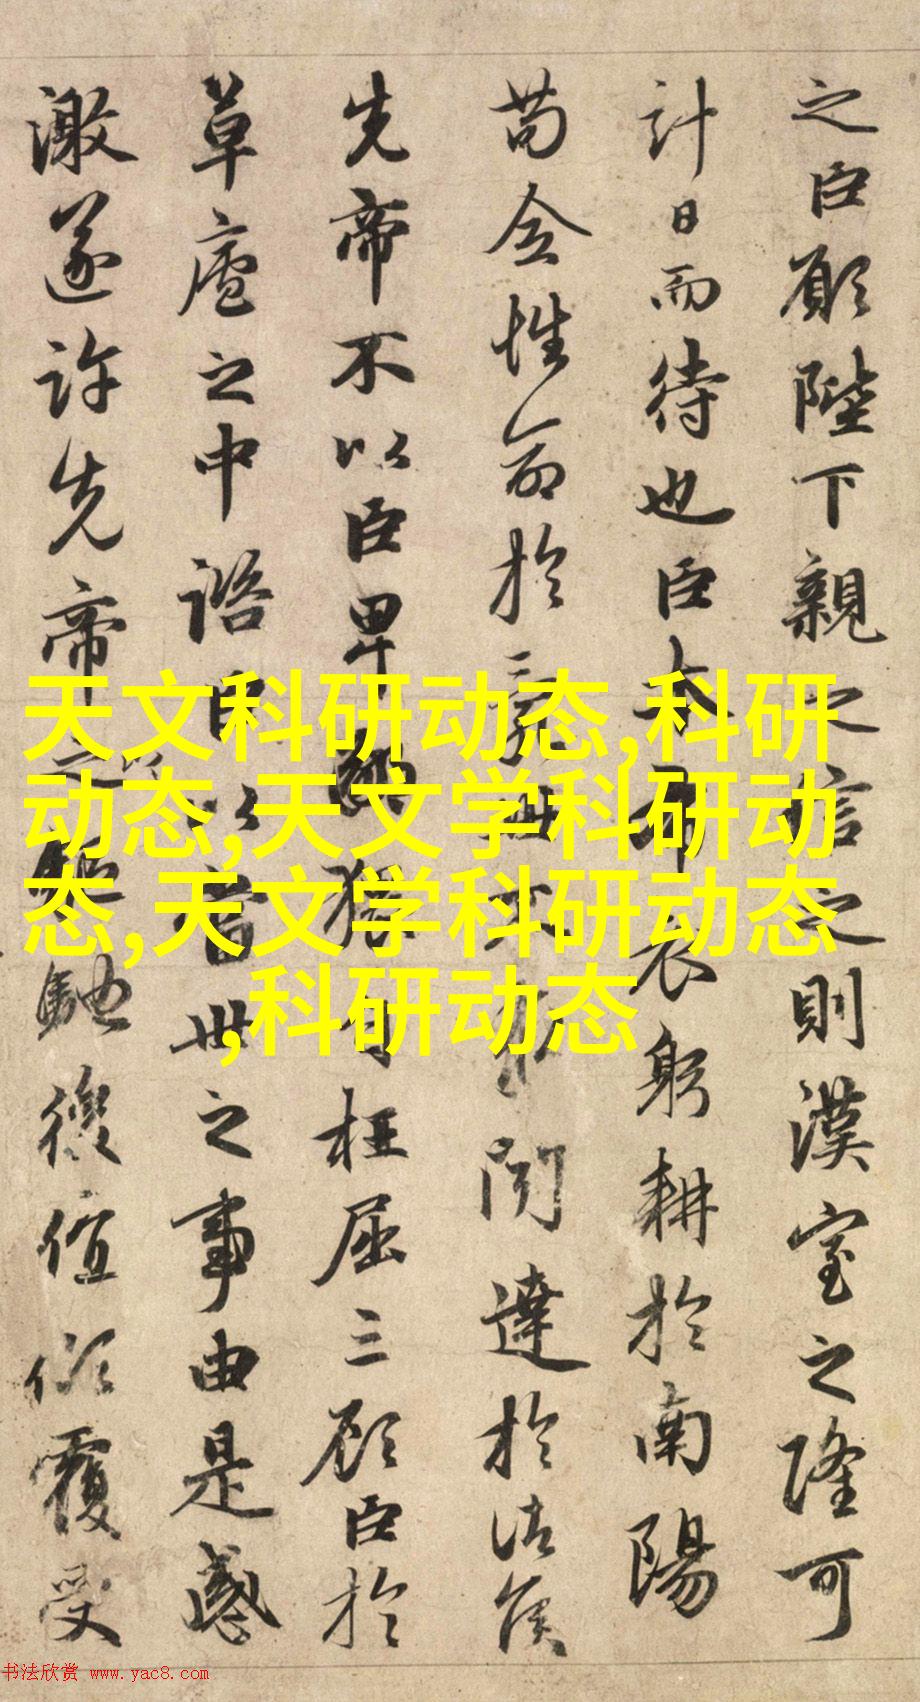 之臣願陛下親之信之則漢室之隆可
計日而待也臣本布衣躬耕於南陽
苟全性命於亂世不求聞達於諸侯
先帝不以臣卑鄙猥自枉屈三顧臣於
草廬之中諮臣以當世之事由是感
激遂許先帝之以驅馳後值傾覆受
天文科研动态,科研
动态,天文学科研动
态,天文学科研动态
,科研动态
书法欣赏 www.yac8.com